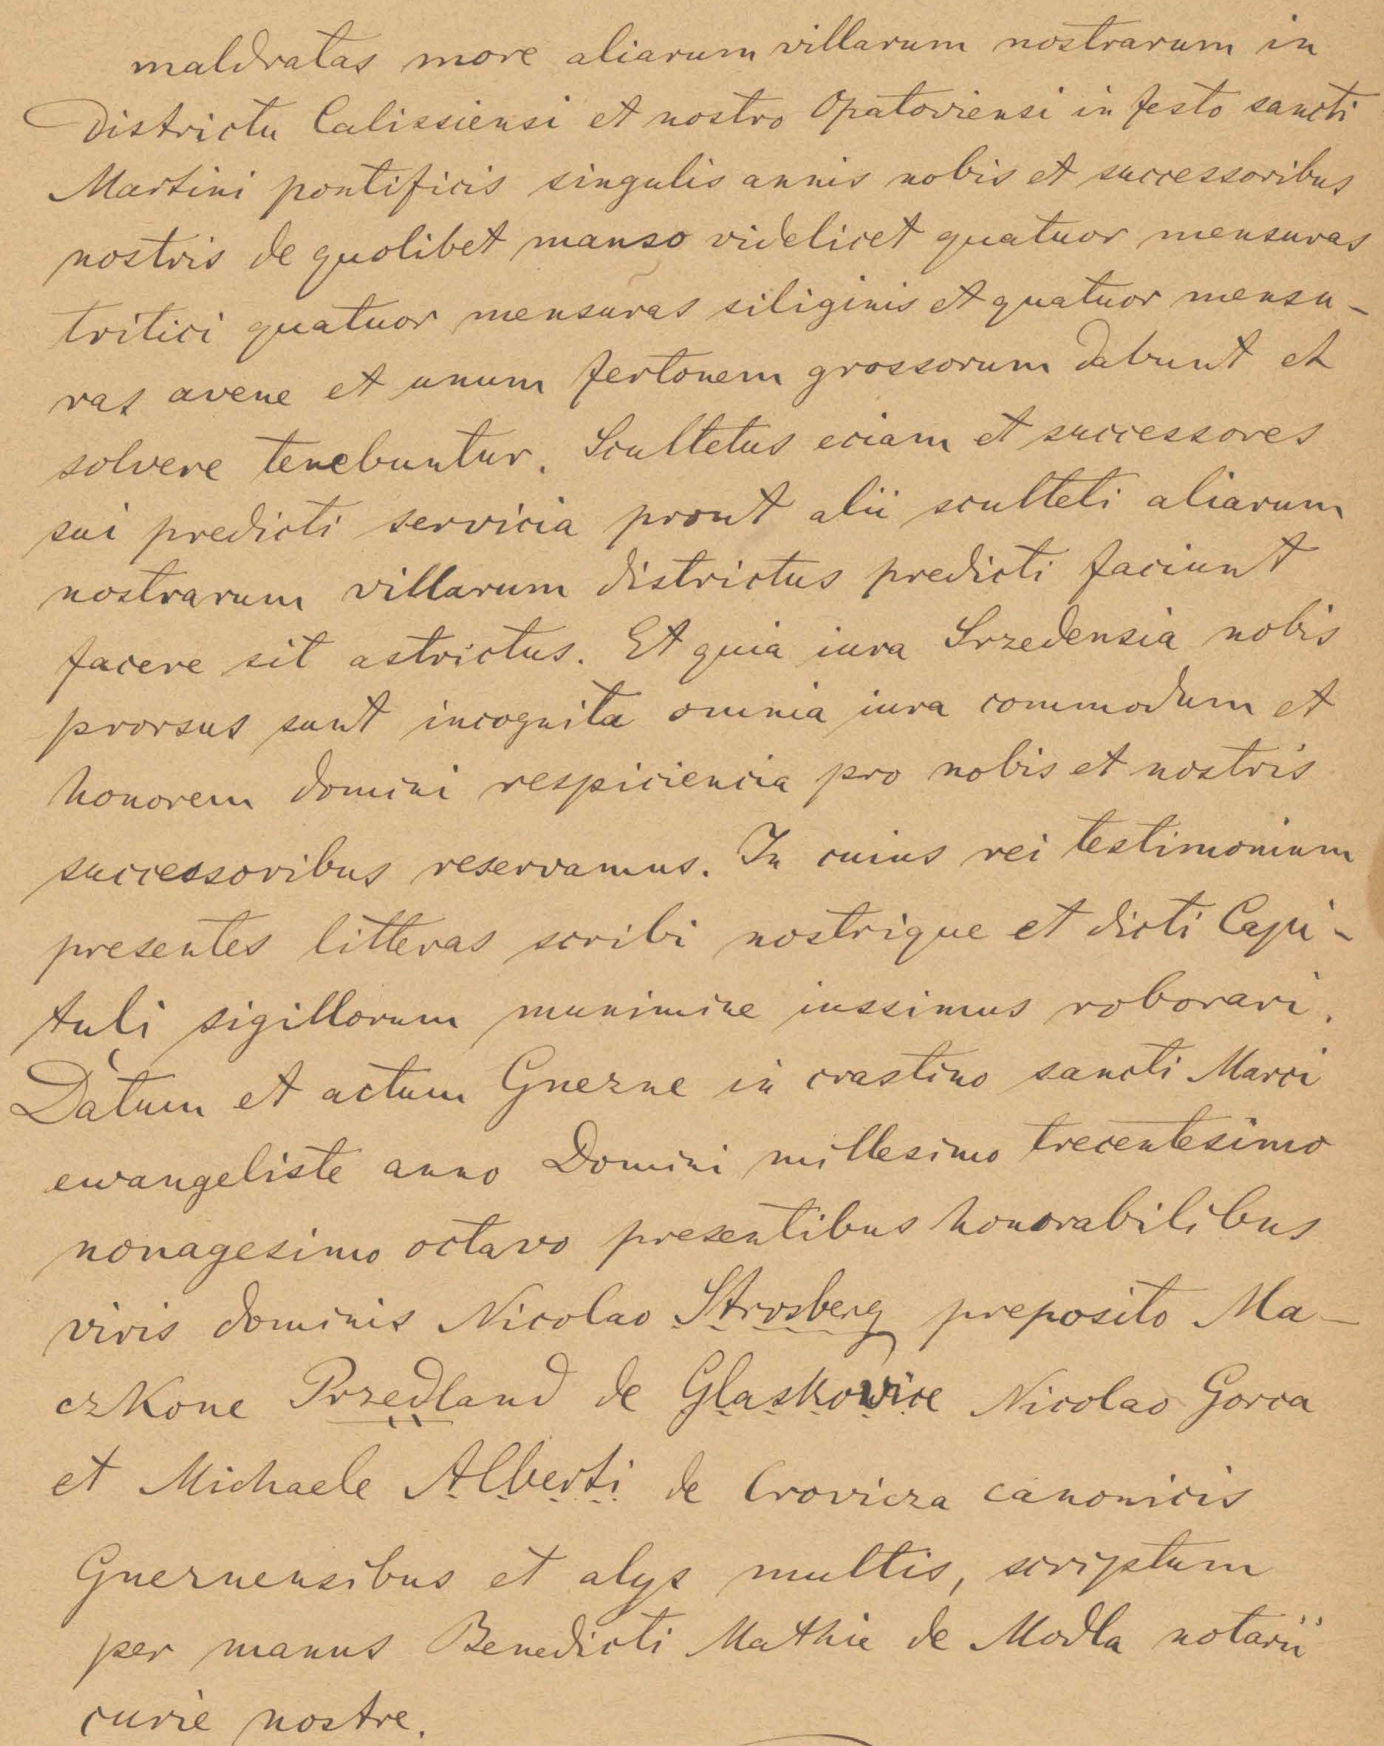 maldratas more aliarum villarum nostrarum in
Districtu Calissiensi et nostro Opatoviensi in festo sancti
Martini pontificis singulis annis nobis et successoribus
nostris de quolibet manso videlicet quatuor mensuras
tritici quatuor mensuras siliginis et quatuor mensu-
ras avene et unum fertonem grossorum dabunt et
solvere tenebuntur. Scultetus eciam et successores
sui predicti servicia prout alii sculteti aliarum
nostrarum villarum districtus predicti faciunt
facere sit astrictus. Et quia iura Srzedensia nobis
prorsus sunt incognita omnia iura commodum et
honorem domini respiciencia pro nobis et nostris
successoribus reservamus. In cuius rei testimonium
presentes litteras scribi nostrique et dicti Capi-
tuli sigillorum munimine iussimus roborari.
Datum et actum Gnezne in crastino sancti Marci
ewangeliste anno Domini millesimo trecentesimo
nonagesimo octavo presentibus honorabilibus
viris dominis Nicolao Strosberg preposito Ma-
czkone Przedland de Glaskowice Nicolao Gorca
et Michaele Alberti de Crovicza canonicis
Gneznensibus et alys multis, scriptum
per manus Benedicti Mathie de Modla notarii
curie nostre.